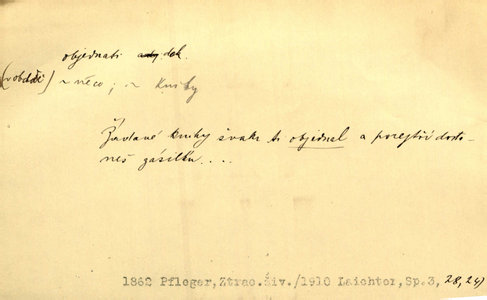 objednati dok.
~ něco ; ~ knihy
Žádané knihy švakr ti objednal a pozejtří dosta-
neš zásilku....
1862 Pfleger,Ztrac.živ./1910 Laichter,Sp.3, 28,24)